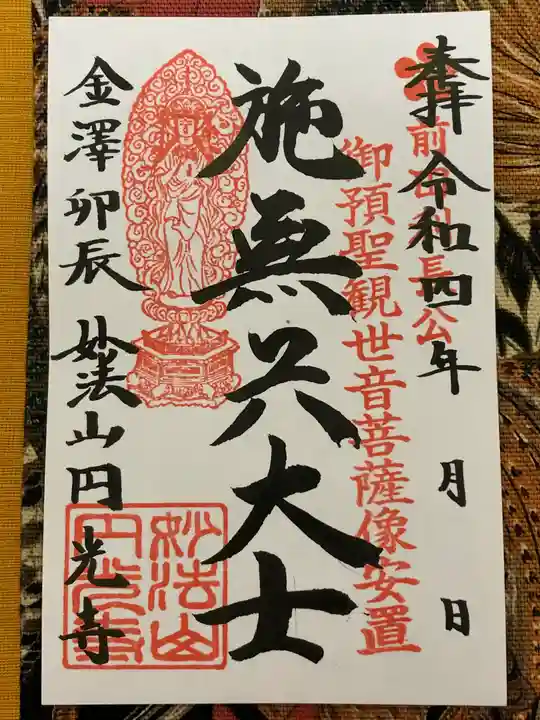 奉拝 令和四年 月 日
前田利長公
御預聖観世音菩薩像安置
施無畏大士
金澤卯辰 妙法山円光寺
妙法山
円光寺